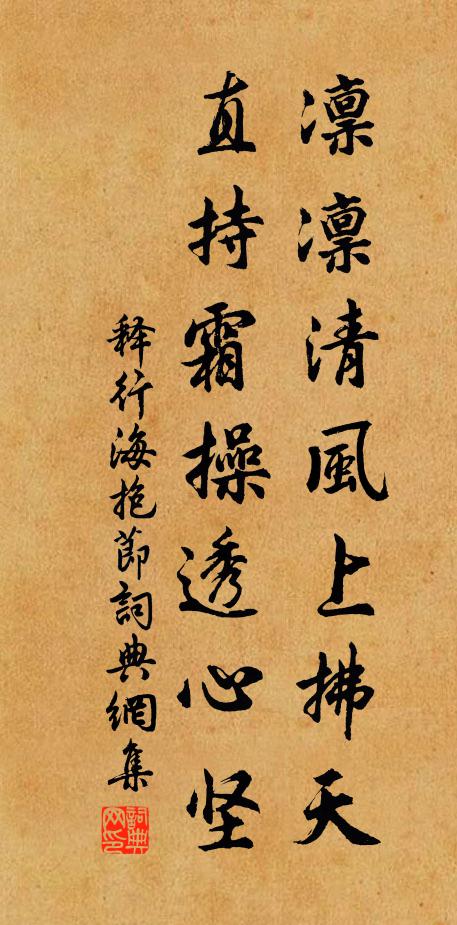 凛凛清風上拂天
直持霜操透心坚
释行海抱節詞典網集
詞典
网印